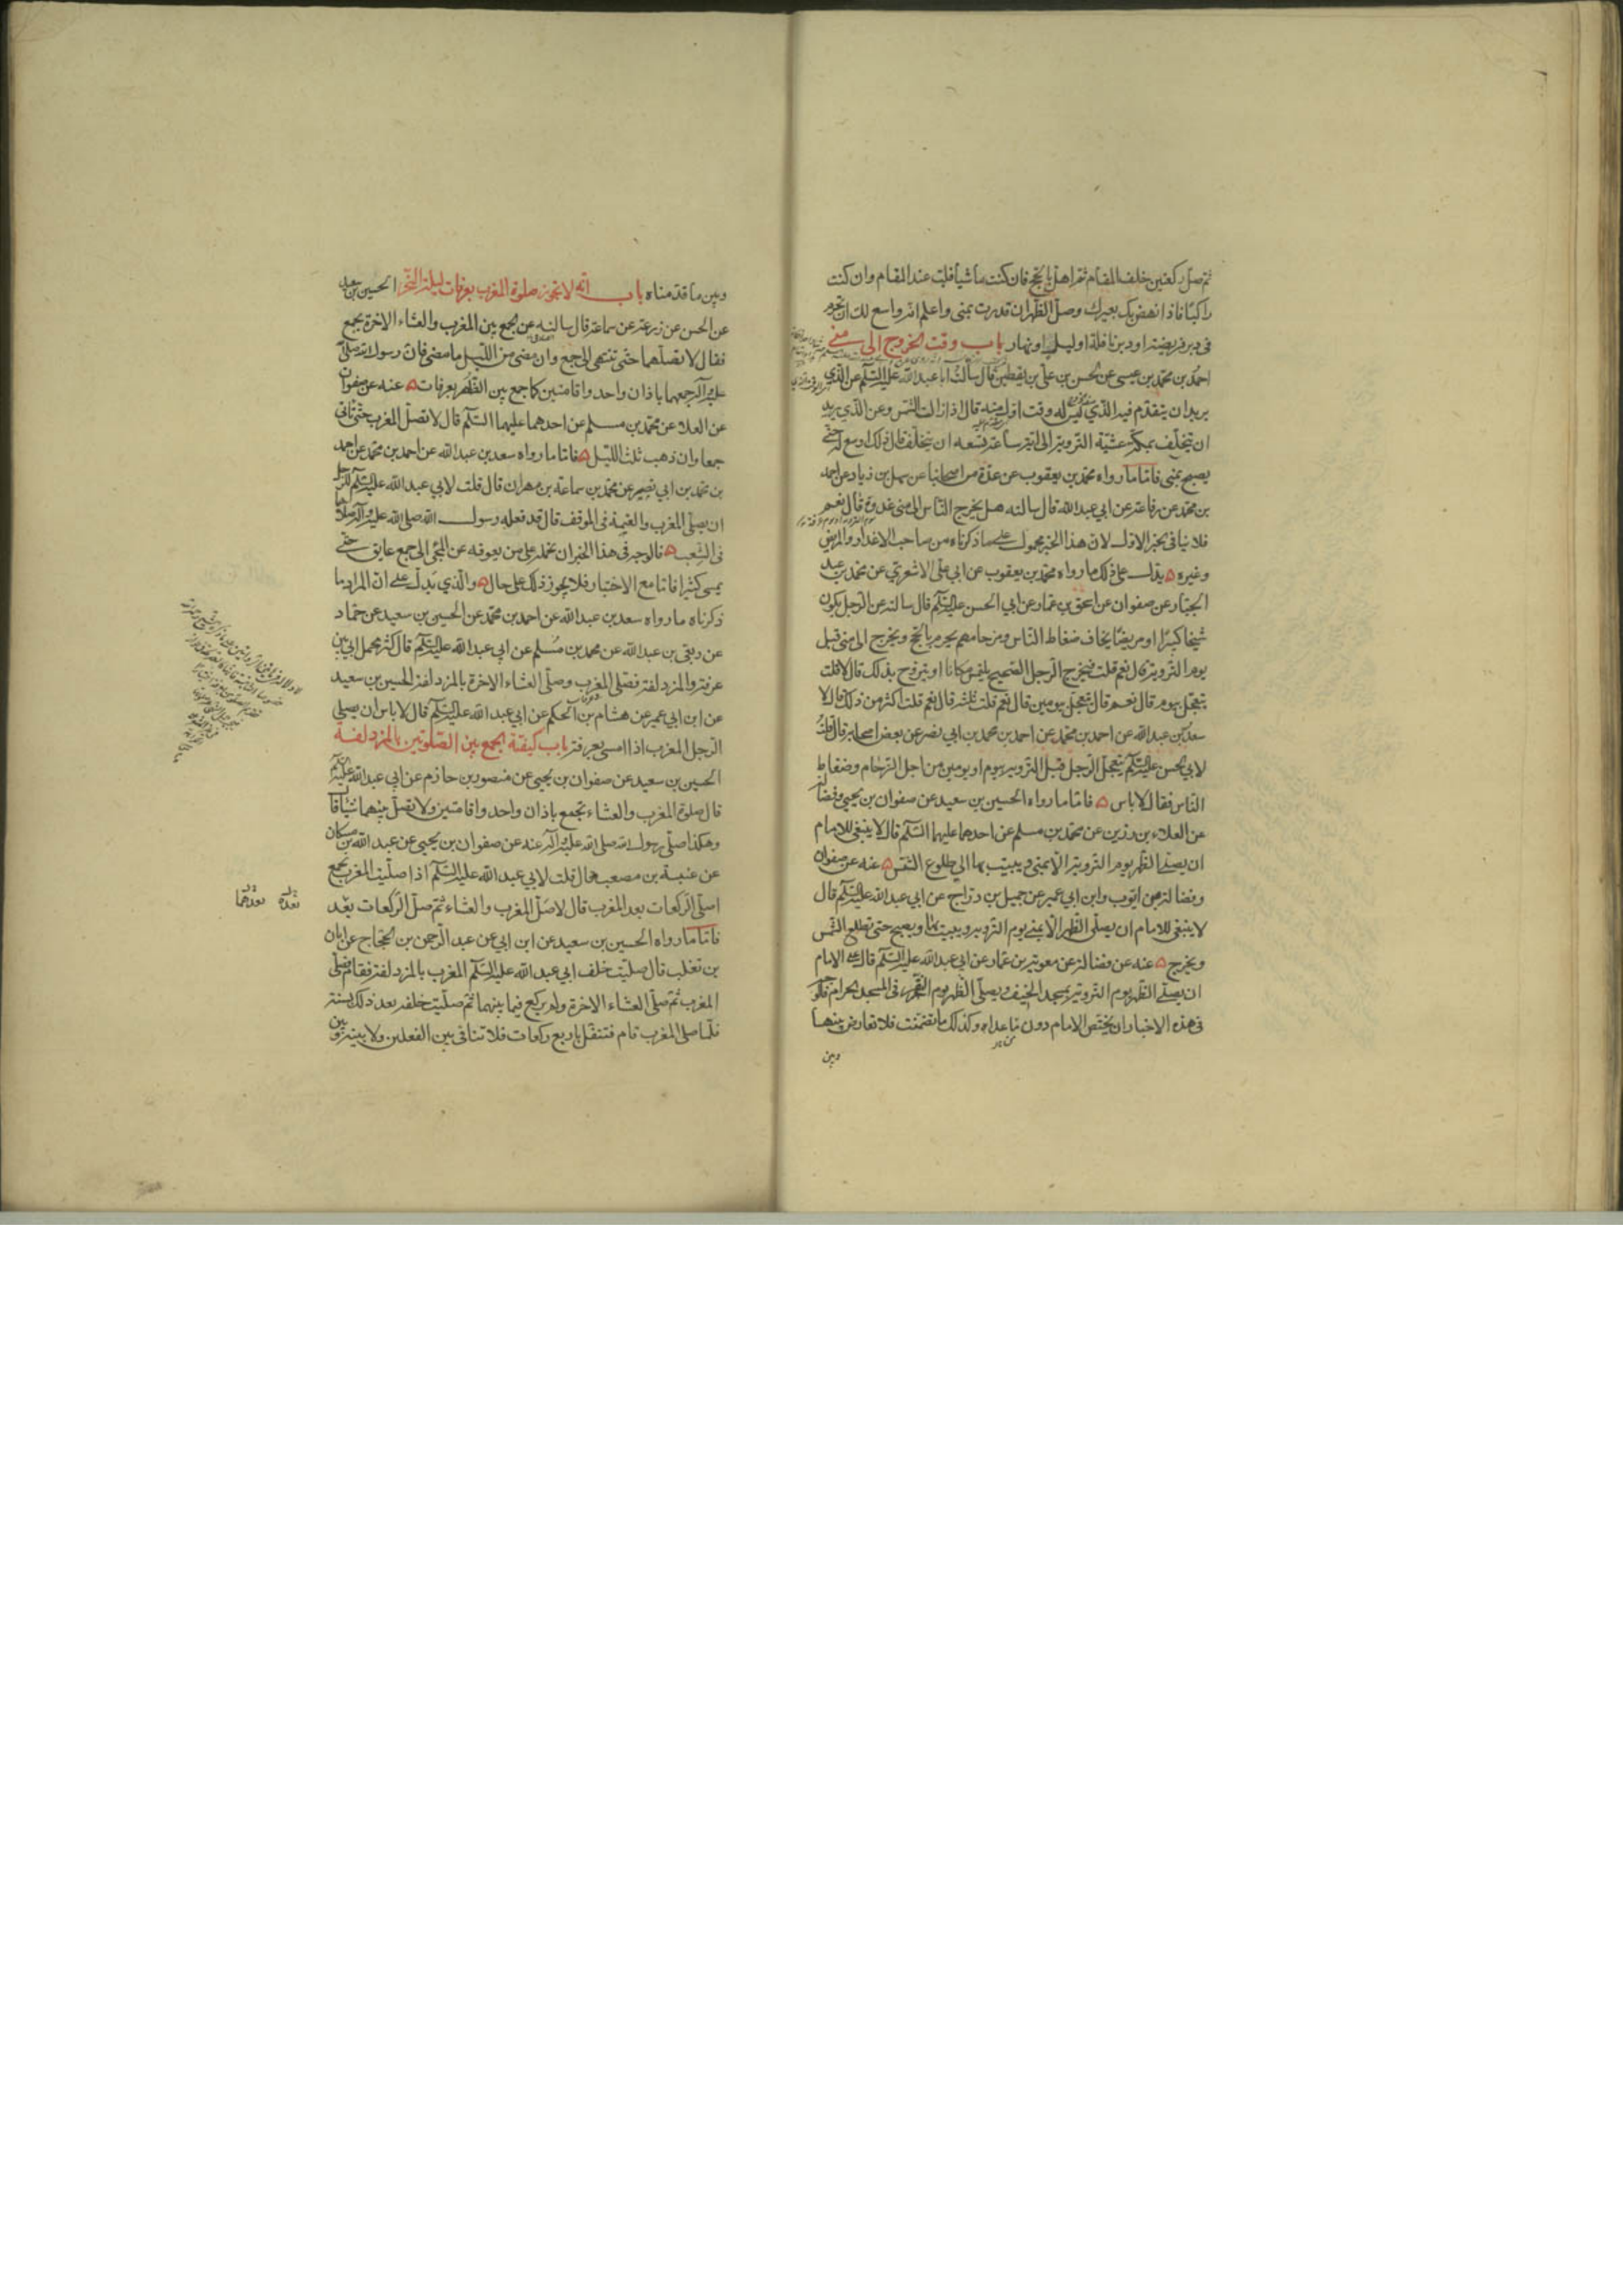 ثم صل ركعتين خلف المقام ثم اهل بالحج فان كنت ماشيا فلبّ عند المقام وان كنت
راكبا فاذا نهض بك بعيرك وصلّ الظهر ان قدرت بمنى واعلم انه واسع لك ان تحرم
فى دبر فريضة او دبر نافلة او ليل او نهار باب وقت الخروج الى منى
احمد بن محمد بن عيسى عن الحسن بن على بن يقطين قال سالت ابا عبد الله عليه السلم عن الذي
يريد ان يتقدم فيه الذي ليس له وقت اول منه قال اذا زالت الشمس وعن الذي يريد
ان يتخلف بمكة عشية التروية الى اية ساعة يسعه ان يتخلف قال ذلك اوسع له حتى
يصبح بمنى فاما ما رواه محمد بن يعقوب عن عدة من اصحابنا عن سهل بن زياد عن احمد
بن محمد عن رفاعة عن ابي عبد الله قال سالته هل يخرج الناس الى منى غدوة قال نعم
فلا ينافى الخبر الاول لان هذا الخبر محمول على ما ذكرناه من صاحب الاعذار والمريض
وغيره يدل على ذلك ما رواه محمد بن يعقوب عن ابي على الاشعري عن محمد بن عبد
الجبار عن صفوان عن اسحق بن عمار عن ابي الحسن عليه السلم قال سالته عن الرجل يكون
شيخا كبيرا او مريضا يخاف ضغاط الناس وزحامهم يحرم بالحج ويخرج الى منى قبل
يوم التروية قال نعم قلت فيخرج الرجل الصحيح يلتمس مكانا او يتروح بذلك قال لا قلت
يتعجل بيوم قال نعم قال يتعجل بيومين قال نعم قلت ثلثة قال نعم قلت اكثر من ذلك قال لا
سعد بن عبد الله عن احمد بن محمد عن احمد بن محمد بن ابي نصر عن بعض اصحابه قال قلت
لابي الحسن عليه السلم يتعجل الرجل قبل التروية بيوم او يومين من اجل الزحام وضغاط
الناس فقال لا باس فاما ما رواه الحسين بن سعيد عن صفوان بن يحيى وفضالة
عن العلاء بن رزين عن محمد بن مسلم عن احدهما عليهما السلم قال لا ينبغى للامام
ان يصلى الظهر يوم التروية الا بمنى ويبيت بها الى طلوع الشمس عنه عن صفوان
وفضالة عن ايوب وابن ابي عمير عن جميل بن دراج عن ابي عبد الله عليه السلم قال
لا ينبغى للامام ان يصلى الظهر الا بمنى يوم التروية ويبيت بها ويصبح حتى تطلع الشمس
ويخرج عنه عن فضالة عن معوية بن عمار عن ابي عبد الله عليه السلم قال على الامام
ان يصلى الظهر يوم التروية بمسجد الخيف ويصلى الظهر يوم النفر فى المسجد الحرام
فى هذه الاخبار ان يختص الامام دون ما عداه وكذلك ما تضمنت فلا تعارض بينها
وبين
وبين ما قدمناه باب انه لا تجوز صلوة المغرب بعرفات ليلة النحر الحسين بن سعيد
عن الحسن عن زرعة عن سماعة قال سالته عن الجمع بين المغرب والعشاء الاخرة بجمع
فقال لا تصلهما حتى تنتهى الى جمع وان مضى من الليل ما مضى فان رسول الله صلى الله
عليه وآله جمعهما باذان واحد واقامتين كما جمع بين الظهر بعرفات عنه عن صفوان
عن العلا عن محمد بن مسلم عن احدهما عليهما السلم قال لا تصل المغرب حتى تاتى
جمعا وان ذهب ثلث الليل فاما ما رواه سعد بن عبد الله عن احمد بن محمد عن احمد
بن محمد بن ابي نصر عن محمد بن سماعة بن مهران قال قلت لابي عبد الله عليه السلم للرجل
ان يصلى المغرب والعتمة فى الموقف قال قد فعله رسول الله صلى الله عليه وآله صلاهما
فى الشعب فالوجه فى هذا الخبر ان نحمله على من يعوقه عن المجئ الى جمع عايق حتى
يمسى كثيرا فاما مع الاختيار فلا يجوز ذلك على حال والذي يدل على ان المراد ما
ذكرناه ما رواه سعد بن عبد الله عن احمد بن محمد عن الحسين بن سعيد عن حماد
عن ربعى بن عبد الله عن محمد بن مسلم عن ابي عبد الله عليه السلم قال كثر محمل ابى بين
عرفة والمزدلفة فصلى المغرب وصلى العشاء الاخرة بالمزدلفة الحسين بن سعيد
عن ابن ابي عمير عن هشام بن الحكم عن ابي عبد الله عليه السلم قال لا باس ان يصلى
الرجل المغرب اذا امسى بعرفة باب كيفية الجمع بين الصلوتين بالمزدلفة
الحسين بن سعيد عن صفوان بن يحيى عن منصور بن حازم عن ابي عبد الله عليه السلم
قال صلوة المغرب والعشاء بجمع باذان واحد واقامتين ولا تصل بينهما شيئا قال
وهكذا صلى رسول الله صلى الله عليه وآله عنه عن صفوان بن يحيى عن عبد الله بن مسكان
عن عنبسة بن مصعب قال قلت لابي عبد الله عليه السلم اذا صليت المغرب بجمع
اصلى الركعات بعد المغرب قال لا صل المغرب والعشاء ثم صل الركعات بعد
فاما ما رواه الحسين بن سعيد عن ابن ابي عن عبد الرحمن بن الحجاج عن ابان
بن تغلب قال صليت خلف ابي عبد الله عليه السلم المغرب بالمزدلفة فقام فصلى
المغرب ثم صلى العشاء الاخرة ولم يركع فيما بينهما ثم صليت خلفه بعد ذلك بسنة
فلما صلى المغرب قام فتنفل باربع ركعات فلا تنافى بين الفعلين ولا بينه وبين